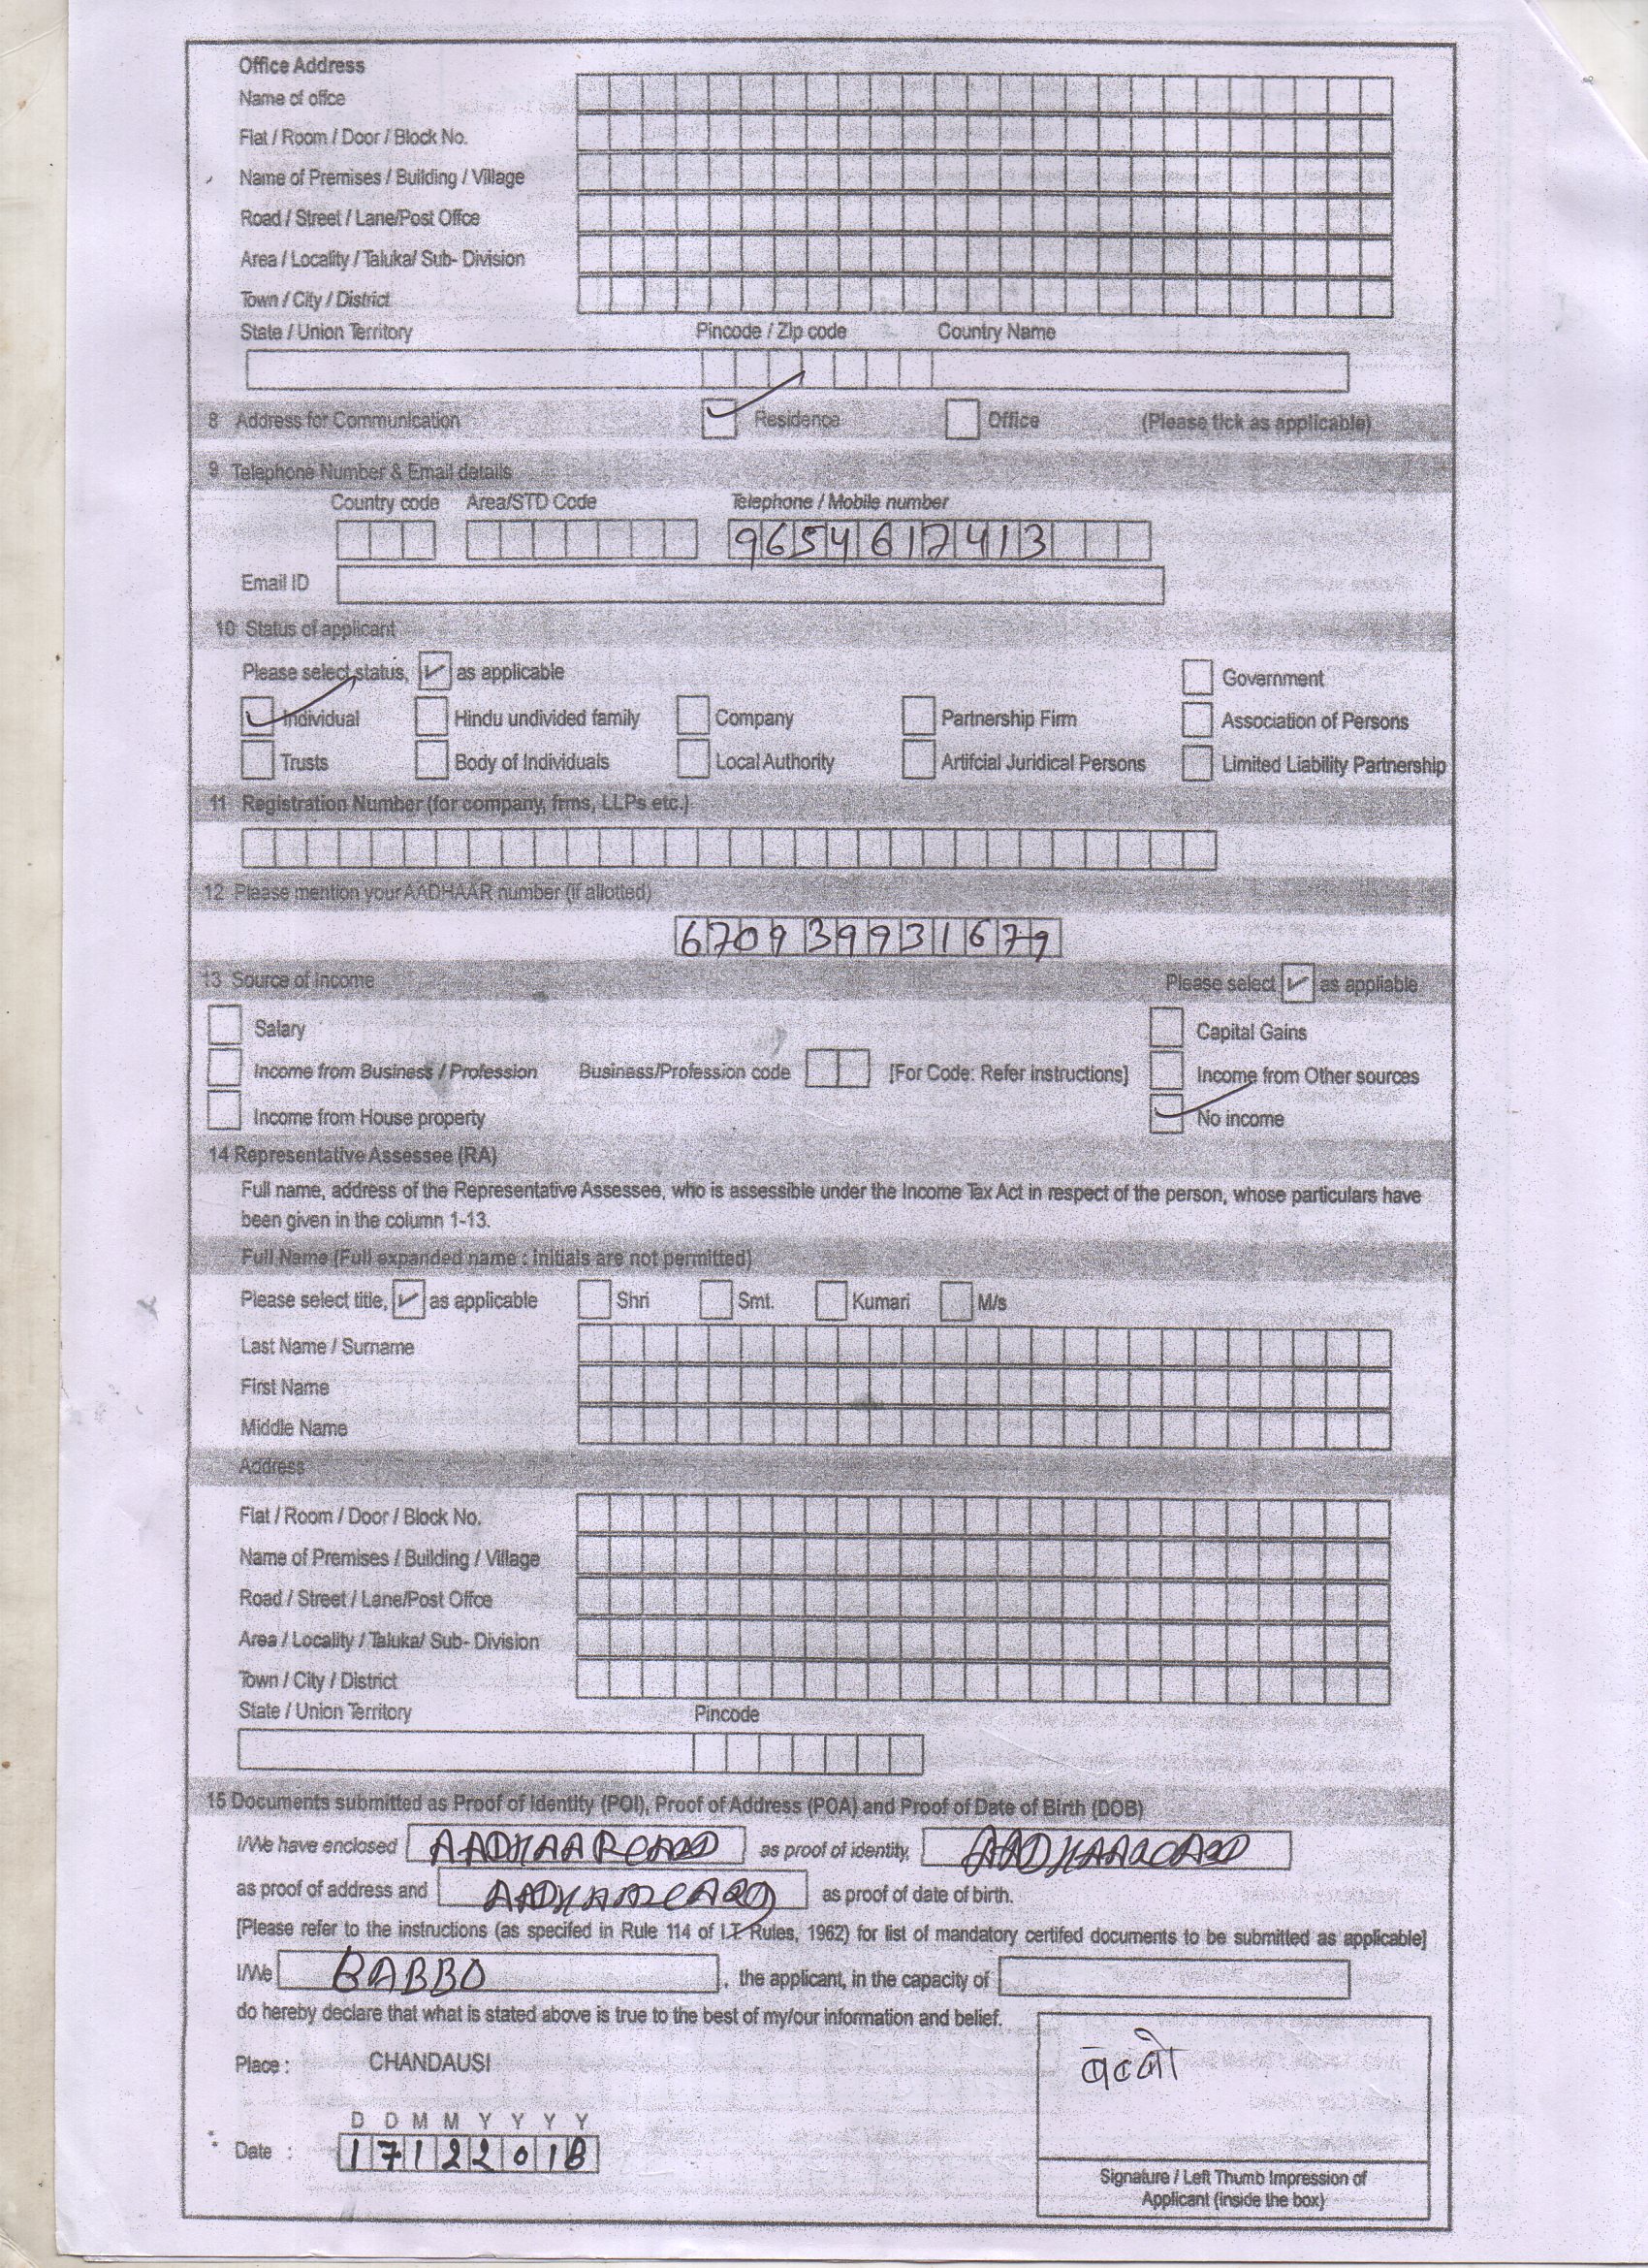 Office Address
Name of offce
Flat / Room / Door / Block No.
Name of Premises / Building / Village
Road / Street / Lane/Post Offce
Area / Locality / Taluka/ Sub- Division
Town / City / District
State / Union Territory Pincode / Zip code Country Name
8 Address for Communication Residence Office (Please tick as applicable)
9 Telephone Number & Email details
Country code Area/STD Code Telephone / Mobile number
9654617413
Email ID
10 Status of applicant
Please select status, ✓ as applicable Government
Individual Hindu undivided family Company Partnership Firm Association of Persons
Trusts Body of Individuals Local Authority Artifcial Juridical Persons Limited Liability Partnership
11 Registration Number (for company, frms, LLPs etc.)
12 Please mention your AADHAAR number (if allotted)
670939931679
13 Source of Income Please select ✓ as appliable
Salary Capital Gains
Income from Business / Profession Business/Profession code [For Code: Refer instructions] Income from Other sources
Income from House property No income
14 Representative Assessee (RA)
Full name, address of the Representative Assessee, who is assessible under the Income Tax Act in respect of the person, whose particulars have
been given in the column 1-13.
Full Name (Full expanded name : initials are not permitted)
Please select title, ✓ as applicable Shri Smt. Kumari M/s
Last Name / Surname
First Name
Middle Name
Address
Flat / Room / Door / Block No.
Name of Premises / Building / Village
Road / Street / Lane/Post Offce
Area / Locality / Taluka/ Sub- Division
Town / City / District
State / Union Territory Pincode
15 Documents submitted as Proof of Identity (POI), Proof of Address (POA) and Proof of Date of Birth (DOB)
I/We have enclosed AADHAAR CARD as proof of identity, AADHAAR CARD
as proof of address and AADHAAR CARD as proof of date of birth.
[Please refer to the instructions (as specifed in Rule 114 of I.T. Rules, 1962) for list of mandatory certifed documents to be submitted as applicable]
I/We BABBO , the applicant, in the capacity of
do hereby declare that what is stated above is true to the best of my/our information and belief.
Place : CHANDAUSI
बब्बो
D D M M Y Y Y Y
Date : 17122018
Signature / Left Thumb Impression of
Applicant (inside the box)